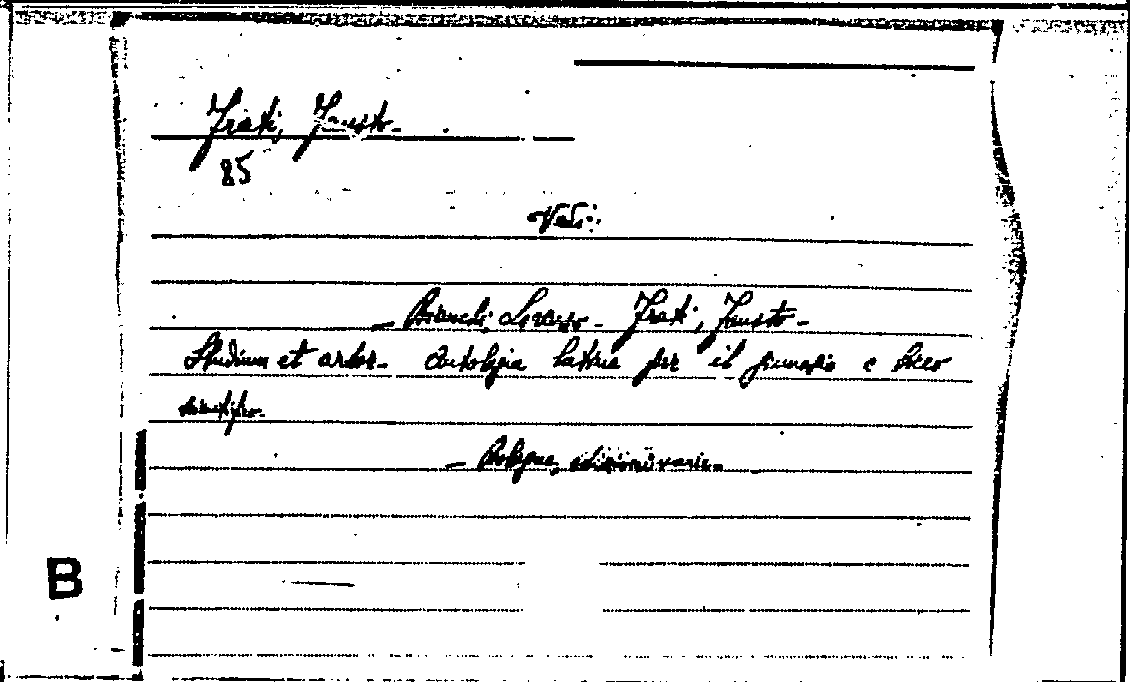 Frati, Fausto.
85
Vedi:
- Bianchi, Lorenzo - Frati, Fausto -
Studium et ardor - Antologia latina per il ginnasio e liceo
scientifico.
- Bologna, edizioni varie.
B